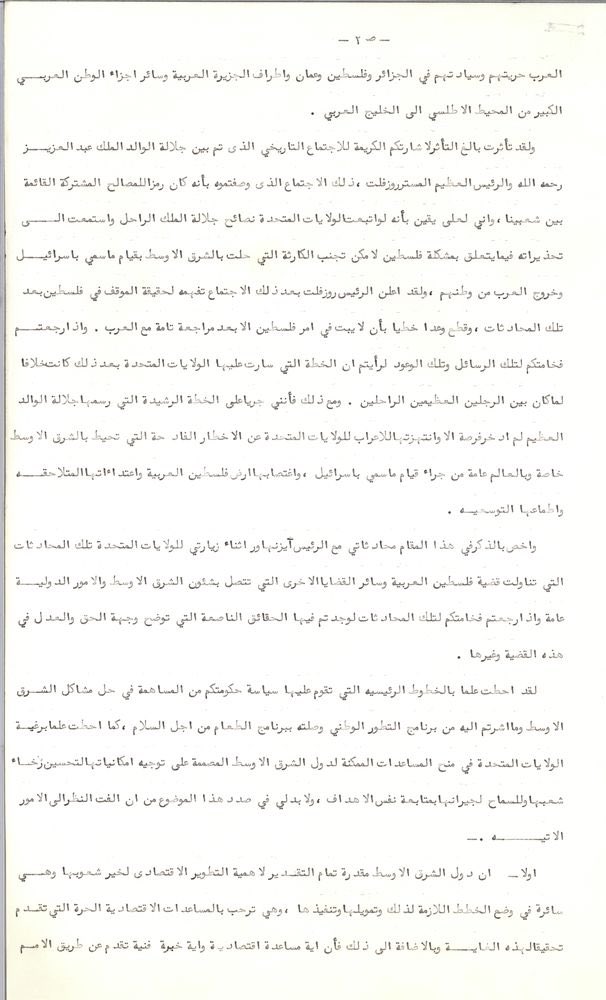 — ص ٢ —
العرب حريتهم وسيادتهم في الجزائر وفلسطين وعمان واطراف الجزيرة العربية وسائر اجزاء الوطن العربي
الكبير من المحيط الاطلسي الى الخليج العربي .
ولقد تأثرت بالغ التأثر لاشارتكم الكريمة للاجتماع التاريخي الذى تم بين جلالة الوالد الملك عبد العزيز
رحمه الله والرئيس العظيم المستر روزفلت ، ذلك الاجتماع الذى وصفتموه بأنه كان رمزا للمصالح المشتركة القائمة
بين شعبينا ، واني لعلى يقين بأنه لو اتبعت الولايات المتحدة نصائح جلالة الملك الراحل واستمعت الى
تحذيراته فيما يتعلق بمشكلة فلسطين لامكن تجنب الكارثة التي حلت بالشرق الاوسط بقيام ماسمي باسرائيل
وخروج العرب من وطنهم ، ولقد اعلن الرئيس روزفلت بعد ذلك الاجتماع تفهمه لحقيقة الموقف في فلسطين بعد
تلك المحادثات ، وقطع وعدا خطيا بأن لا يبت في امر فلسطين الا بعد مراجعة تامة مع العرب . واذا رجعتم
فخامتكم لتلك الرسائل وتلك الوعود لرأيتم ان الخطة التي سارت عليها الولايات المتحدة بعد ذلك كانت خلافا
لما كان بين الرجلين العظيمين الراحلين . ومع ذلك فأنني جريا على الخطة الرشيدة التي رسمها جلالة الوالد
العظيم لم ادخر فرصة الا وانتهزتها للاعراب للولايات المتحدة عن الاخطار الفادحة التي تحيط بالشرق الاوسط
خاصة وبالعالم عامة من جراء قيام ماسمي باسرائيل ، واغتصابها ارض فلسطين العربية واعتداءاتها المتلاحقه
واطماعها التوسعيه .
واخص بالذكر في هذا المقام محادثاتي مع الرئيس آيزنهاور اثناء زيارتي للولايات المتحدة تلك المحادثات
التي تناولت قضية فلسطين العربية وسائر القضايا الاخرى التي تتصل بشئون الشرق الاوسط والامور الدولية
عامة واذا رجعتم فخامتكم لتلك المحادثات لوجدتم فيها الحقائق الناصعة التي توضح وجهة الحق والعدل في
هذه القضية وغيرها .
لقد احطت علما بالخطوط الرئيسيه التي تقوم عليها سياسة حكومتكم من المساهمة في حل مشاكل الشرق
الاوسط وما اشرتم اليه من برنامج التطور الوطني وصلته ببرنامج الطعام من اجل السلام ، كما احطت علما برغبة
الولايات المتحدة في منح المساعدات الممكنة لدول الشرق الاوسط المصممة على توجيه امكانياتها لتحسين رخاء
شعبها وللسماح لجيرانها بمتابعة نفس الاهداف ، ولا بد لي في صدد هذا الموضوع من ان الفت النظر الى الامور
الاتيه .—
اولا — ان دول الشرق الاوسط مقدرة تمام التقدير لاهمية التطوير الاقتصادى لخير شعوبها وهي
سائرة في وضع الخطط اللازمة لذلك وتمويلها وتنفيذها ، وهي ترحب بالمساعدات الاقتصادية الحرة التي تقدم
تحقيقا لهذه الغاية وبالاضافة الى ذلك فأن اية مساعدة اقتصادية واية خبرة فنية تقدم عن طريق الامم